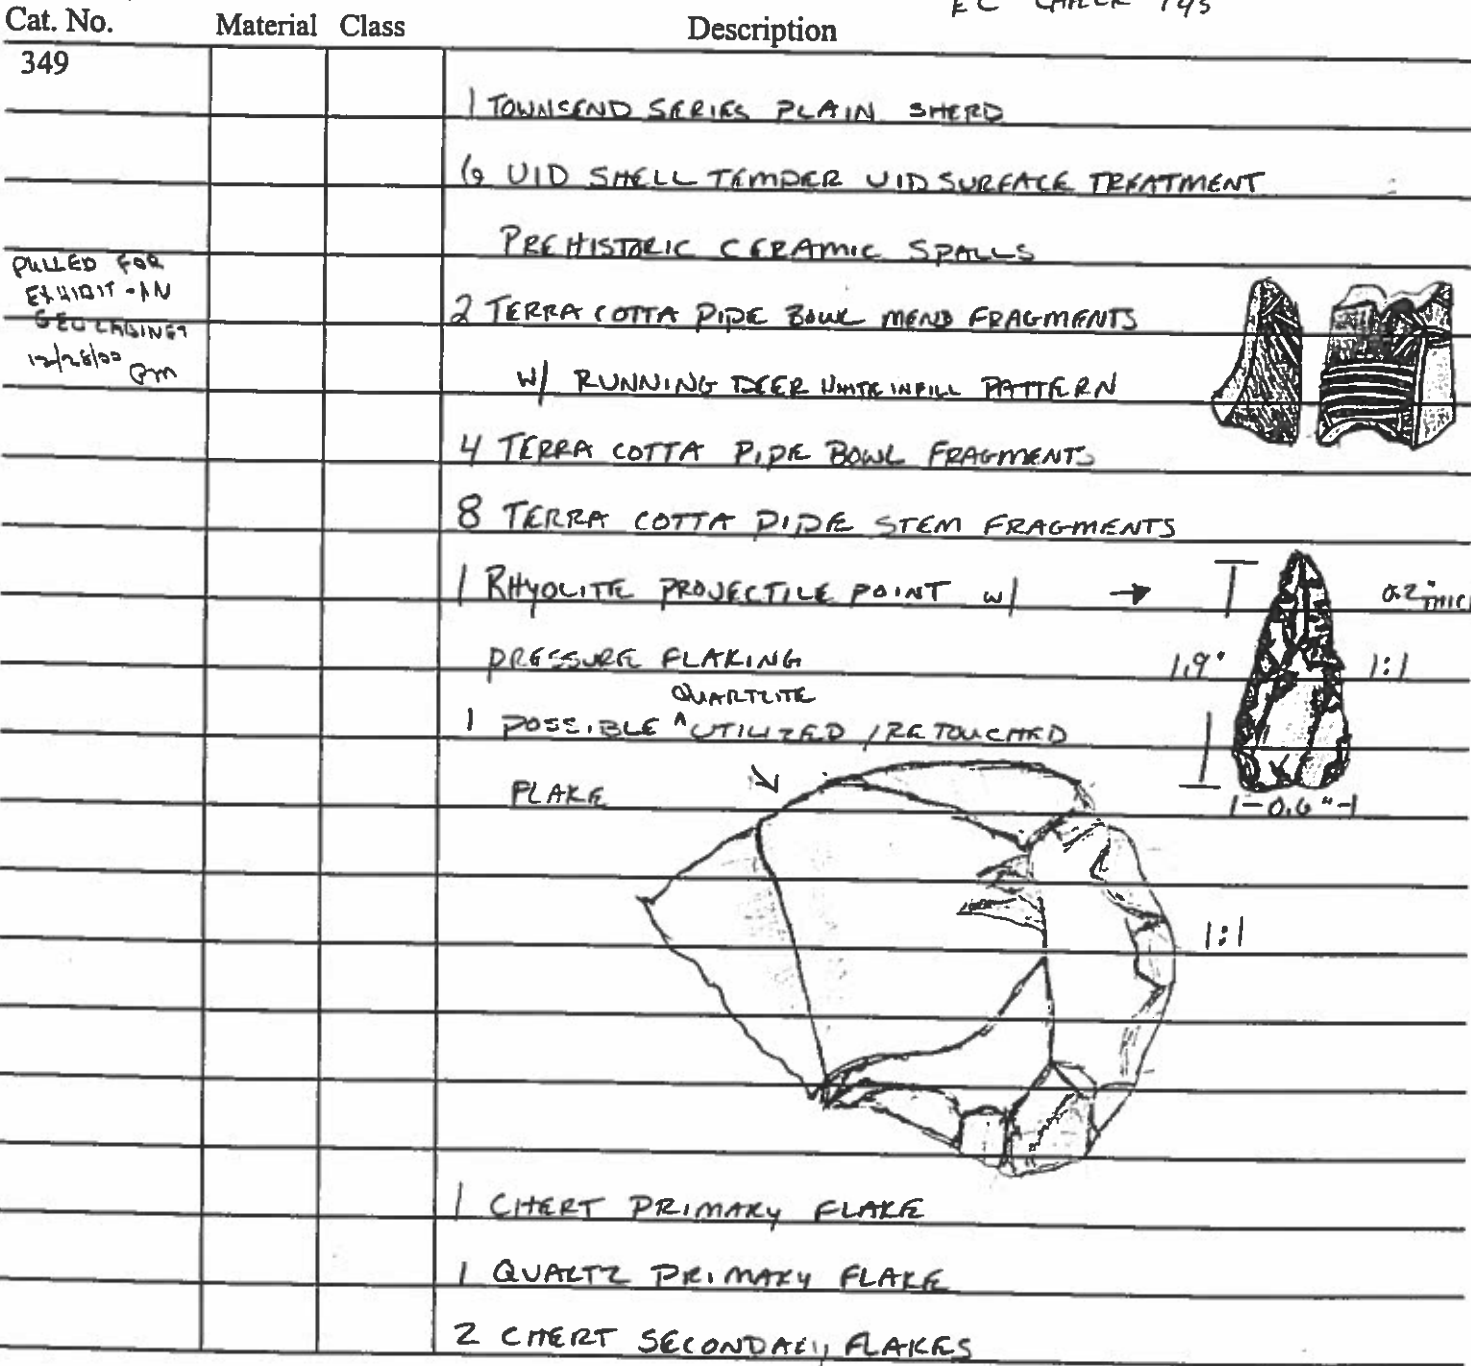 Cat. No. Material Class Description
349
1 TOWNSEND SERIES PLAIN SHERD
6 UID SHELL TEMPER UID SURFACE TREATMENT
PREHISTORIC CERAMIC SPALLS
PULLED FOR
EXHIBIT - IN
GEO CABINET
12/28/00
2 TERRA COTTA PIPE BOWL MEND FRAGMENTS
W/ RUNNING DEER WHITE INFILL PATTERN
4 TERRA COTTA PIPE BOWL FRAGMENTS
8 TERRA COTTA PIPE STEM FRAGMENTS
1 RHYOLITE PROJECTILE POINT W/ → 0.2" THICK
PRESSURE FLAKING 1.9" 1:1
QUARTZITE
1 POSSIBLE ^ UTILIZED / RETOUCHED
FLAKE
0.6"
1:1
1 CHERT PRIMARY FLAKE
1 QUARTZ PRIMARY FLAKE
2 CHERT SECONDARY FLAKES